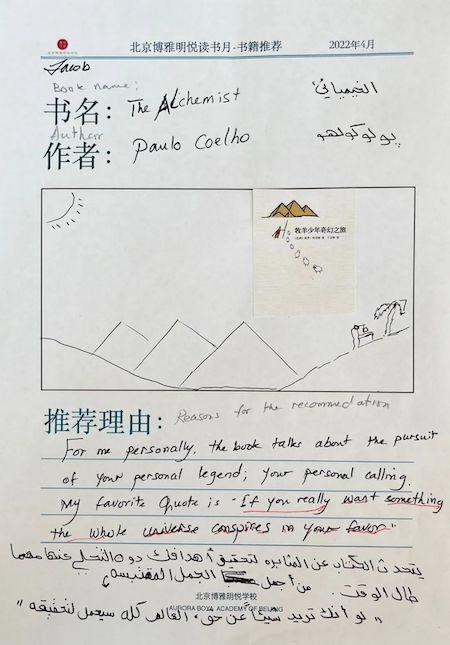 北京博雅明悦读书月-书籍推荐
2022年4月
Jacob
Book name:
书名: The Alchemist الخيميائي
Author
作者: Paulo Coelho پولو كولهو
牧羊少年奇幻之旅
推荐理由: Reasons for the recommedation
For me personally, the book talks about the pursuit
of your personal legend; your personal calling.
My favorite Quote is "If you really want something
the whole universe conspires in your favor"
يتحدث الكتاب عن المثابره لتحقيق أهدافك دون التخلي عنها مهما
طال الوقت. من أجمل الجمل المقتبسه
北京博雅明悦学校
AURORA BOYA ACADEMY OF BEIJING
" لو أنك تريد شيئاً عن حق، العالم كله سيعمل لتحقيقه "